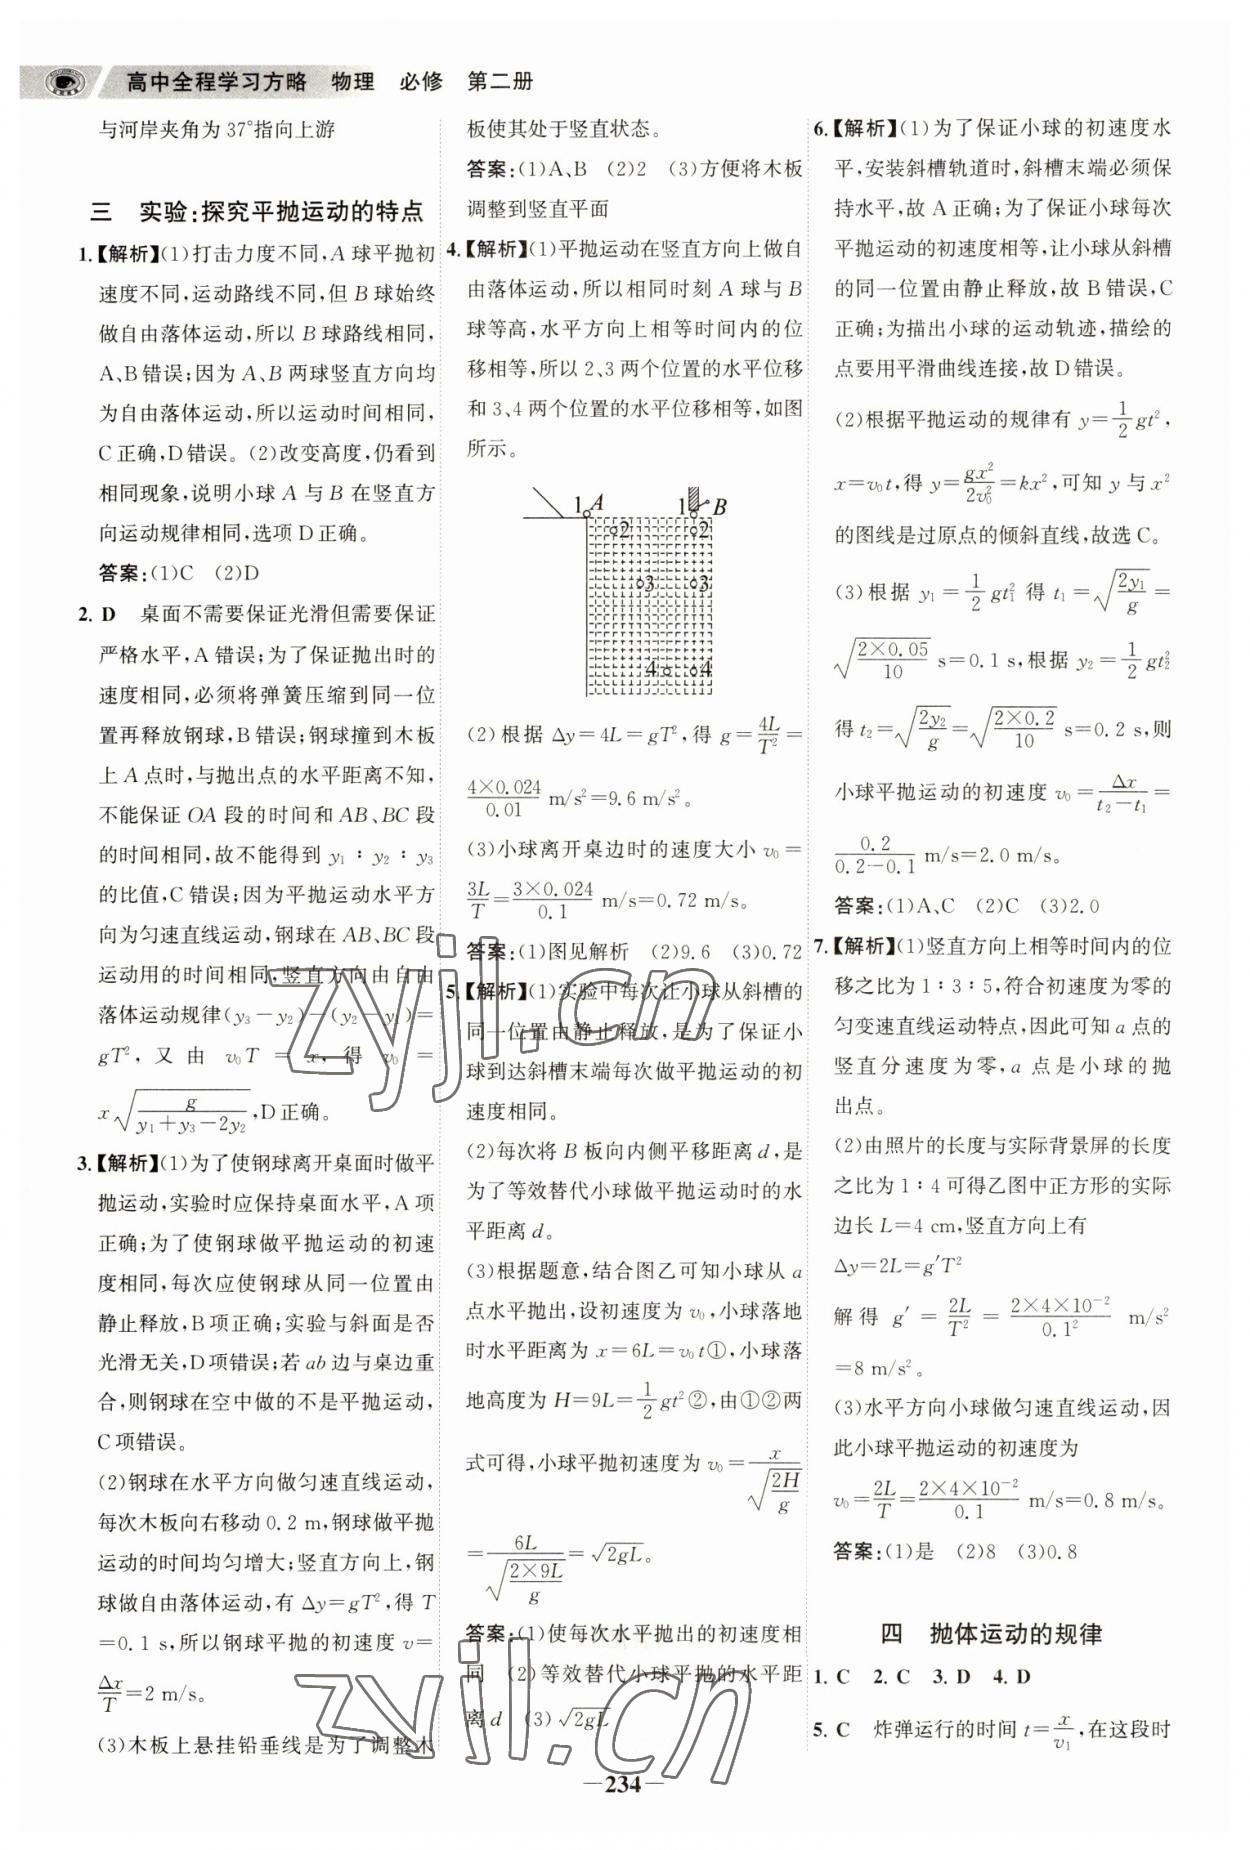 高中全程学习方略　物理　必修　第二册
与河岸夹角为37°指向上游
三　实验:探究平抛运动的特点
1.【解析】(1)打击力度不同,A球平抛初
速度不同,运动路线不同,但B球始终
做自由落体运动,所以B球路线相同,
A、B错误;因为A、B两球竖直方向均
为自由落体运动,所以运动时间相同,
C正确,D错误。(2)改变高度,仍看到
相同现象,说明小球A与B在竖直方
向运动规律相同,选项D正确。
答案:(1)C　(2)D
2. D　桌面不需要保证光滑但需要保证
严格水平,A错误;为了保证抛出时的
速度相同,必须将弹簧压缩到同一位
置再释放钢球,B错误;钢球撞到木板
上A点时,与抛出点的水平距离不知,
不能保证OA段的时间和AB、BC段
的时间相同,故不能得到y₁∶y₂∶y₃
的比值,C错误;因为平抛运动水平方
向为匀速直线运动,钢球在AB、BC段
运动用的时间相同,竖直方向由自由
落体运动规律(y₃−y₂)−(y₂−y₁)=
gT²,又由v₀T=x,得v₀=
x√(g/(y₁+y₃−2y₂)),D正确。
3.【解析】(1)为了使钢球离开桌面时做平
抛运动,实验时应保持桌面水平,A项
正确;为了使钢球做平抛运动的初速
度相同,每次应使钢球从同一位置由
静止释放,B项正确;实验与斜面是否
光滑无关,D项错误;若ab边与桌边重
合,则钢球在空中做的不是平抛运动,
C项错误。
(2)钢球在水平方向做匀速直线运动,
每次木板向右移动0.2 m,钢球做平抛
运动的时间均匀增大;竖直方向上,钢
球做自由落体运动,有Δy=gT²,得T
=0.1 s,所以钢球平抛的初速度v=
Δx/T=2 m/s。
(3)木板上悬挂铅垂线是为了调整木
板使其处于竖直状态。
答案:(1)A、B　(2)2　(3)方便将木板
调整到竖直平面
4.【解析】(1)平抛运动在竖直方向上做自
由落体运动,所以相同时刻A球与B
球等高,水平方向上相等时间内的位
移相等,所以2、3两个位置的水平位移
和3、4两个位置的水平位移相等,如图
所示。
1 A 1 B
2 2
3 3
4 4
(2)根据Δy=4L=gT²,得g=4L/T²=
4×0.024/0.01 m/s²=9.6 m/s²。
(3)小球离开桌边时的速度大小v₀=
3L/T=3×0.024/0.1 m/s=0.72 m/s。
答案:(1)图见解析　(2)9.6　(3)0.72
5.【解析】(1)实验中每次让小球从斜槽的
同一位置由静止释放,是为了保证小
球到达斜槽末端每次做平抛运动的初
速度相同。
(2)每次将B板向内侧平移距离d,是
为了等效替代小球做平抛运动时的水
平距离d。
(3)根据题意,结合图乙可知小球从a
点水平抛出,设初速度为v₀,小球落地
时水平距离为x=6L=v₀t①,小球落
地高度为H=9L=1/2 gt²②,由①②两
式可得,小球平抛初速度为v₀=x/√(2H/g)
=6L/√(2×9L/g)=√(2gL)。
答案:(1)使每次水平抛出的初速度相
同　(2)等效替代小球平抛的水平距
离d　(3)√(2gL)
6.【解析】(1)为了保证小球的初速度水
平,安装斜槽轨道时,斜槽末端必须保
持水平,故A正确;为了保证小球每次
平抛运动的初速度相等,让小球从斜槽
的同一位置由静止释放,故B错误,C
正确;为描出小球的运动轨迹,描绘的
点要用平滑曲线连接,故D错误。
(2)根据平抛运动的规律有y=1/2 gt²,
x=v₀t,得y=gx²/2v₀²=kx²,可知y与x²
的图线是过原点的倾斜直线,故选C。
(3)根据y₁=1/2 gt₁²得t₁=√(2y₁/g)=
√(2×0.05/10) s=0.1 s,根据y₂=1/2 gt₂²
得t₂=√(2y₂/g)=√(2×0.2/10) s=0.2 s,则
小球平抛运动的初速度v₀=Δx/(t₂−t₁)=
0.2/(0.2−0.1) m/s=2.0 m/s。
答案:(1)A、C　(2)C　(3)2.0
7.【解析】(1)竖直方向上相等时间内的位
移之比为1∶3∶5,符合初速度为零的
匀变速直线运动特点,因此可知a点的
竖直分速度为零,a点是小球的抛
出点。
(2)由照片的长度与实际背景屏的长度
之比为1∶4可得乙图中正方形的实际
边长L=4 cm,竖直方向上有
Δy=2L=g′T²
解得g′=2L/T²=2×4×10⁻²/0.1² m/s²
=8 m/s²。
(3)水平方向小球做匀速直线运动,因
此小球平抛运动的初速度为
v₀=2L/T=2×4×10⁻²/0.1 m/s=0.8 m/s。
答案:(1)是　(2)8　(3)0.8
四　抛体运动的规律
1. C　2. C　3. D　4. D
5. C　炸弹运行的时间t=x/v₁,在这段时
zyjl.cn
zyjl.cn
—234—